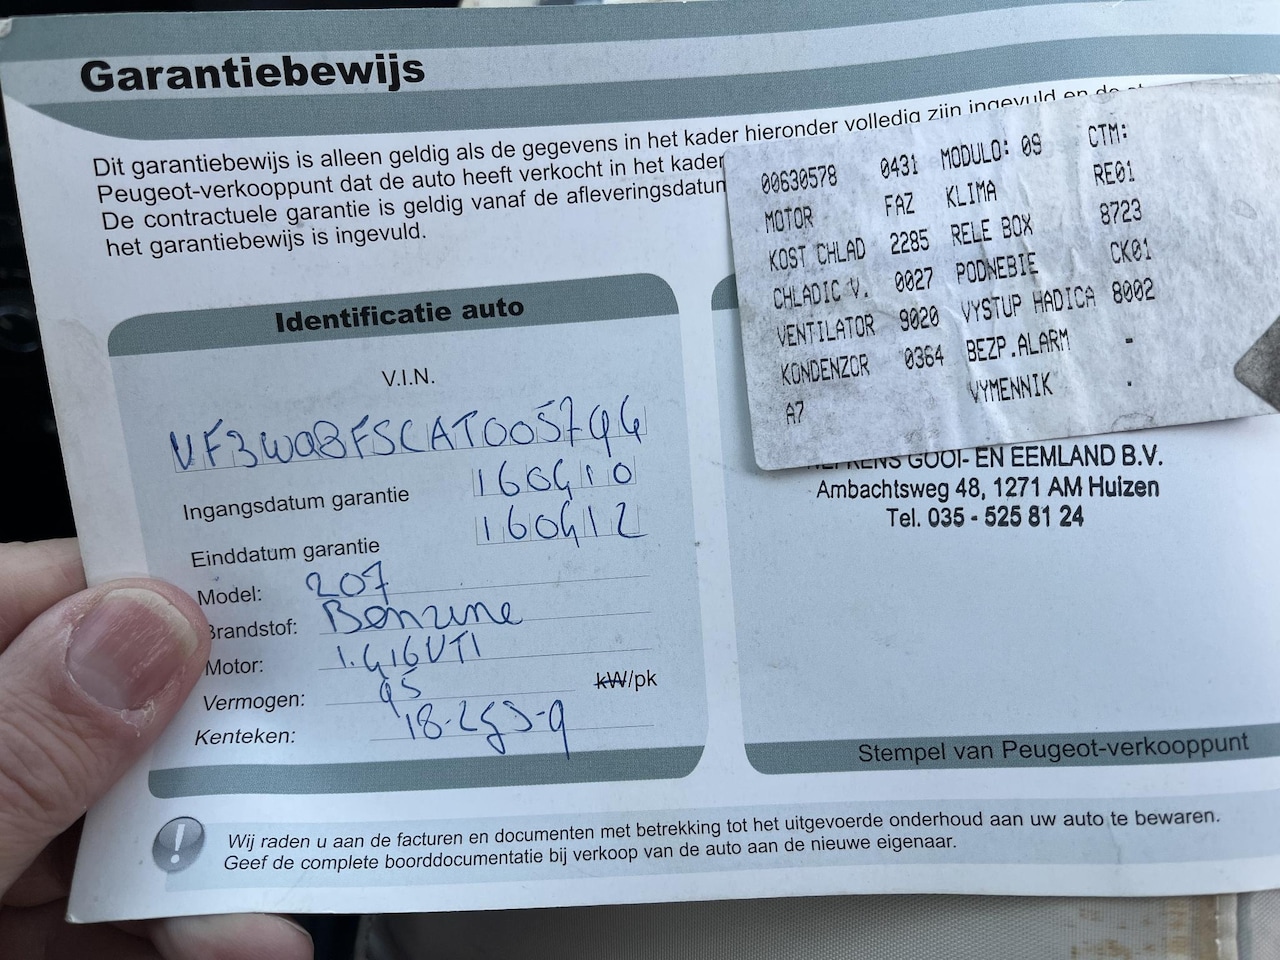 Garantiebewijs
Dit garantiebewijs is alleen geldig als de gegevens in het kader hieronder volledig zijn ingevuld en de
Peugeot-verkooppunt dat de auto heeft verkocht in het kader
De contractuele garantie is geldig vanaf de afleveringsdatum
het garantiebewijs is ingevuld.
Identificatie auto
V.I.N.
Ingangsdatum garantie 160410
Einddatum garantie 160412
Model: 207
Brandstof: Benzine
Motor:
Vermogen: 95 kW/pk
Kenteken:
00630578 0431 MODULO: 09 CTM:
MOTOR FAZ KLIMA RE01
KOST CHLAD 2285 RELE BOX 8723
CHLADIC V. 0027 PODNEBIE CK01
VENTILATOR 9020 VYSTUP HADICA 8002
KONDENZOR 0364 BEZP.ALARM -
A7 VYMENNIK .
GOOI- EN EEMLAND B.V.
Ambachtsweg 48, 1271 AM Huizen
Tel. 035 - 525 81 24
Stempel van Peugeot-verkooppunt
Wij raden u aan de facturen en documenten met betrekking tot het uitgevoerde onderhoud aan uw auto te bewaren.
Geef de complete boorddocumentatie bij verkoop van de auto aan de nieuwe eigenaar.